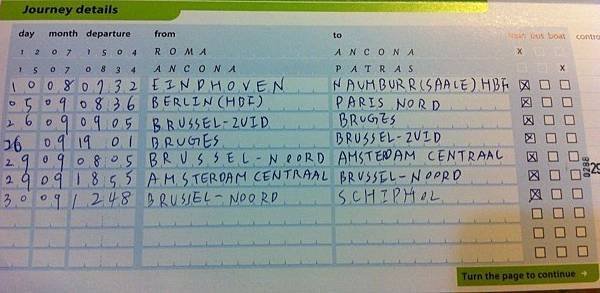 Journey details
day month departure from to train bus boat contro
1 2 0 7 1 5 0 4 R O M A A N C O N A x
1 5 0 7 0 8 3 4 A N C O N A P A T R A S x
1 0 0 8 0 7 3 2 EINDHOVEN NAUMBURR(SAALE) HBF
0 5 0 9 0 8 3 6 BERLIN (HBF) PARIS NORD
2 6 0 9 0 9 0 5 BRUSSEL-ZUID BRUGES
26 09 19 01 BRUGES BRUSSEL-ZUID
2 9 0 9 0 8 0 5 BRUSSEL-NOORD AMSTERDAM CENTRAAL
2 9 0 9 1 8 5 5 AMSTERDAM CENTRAAL BRUSSEL-NOORD
3 0 0 9 1 2 4 8 BRUSSEL-NOORD SCHIPHOL
0288
29
Turn the page to continue →